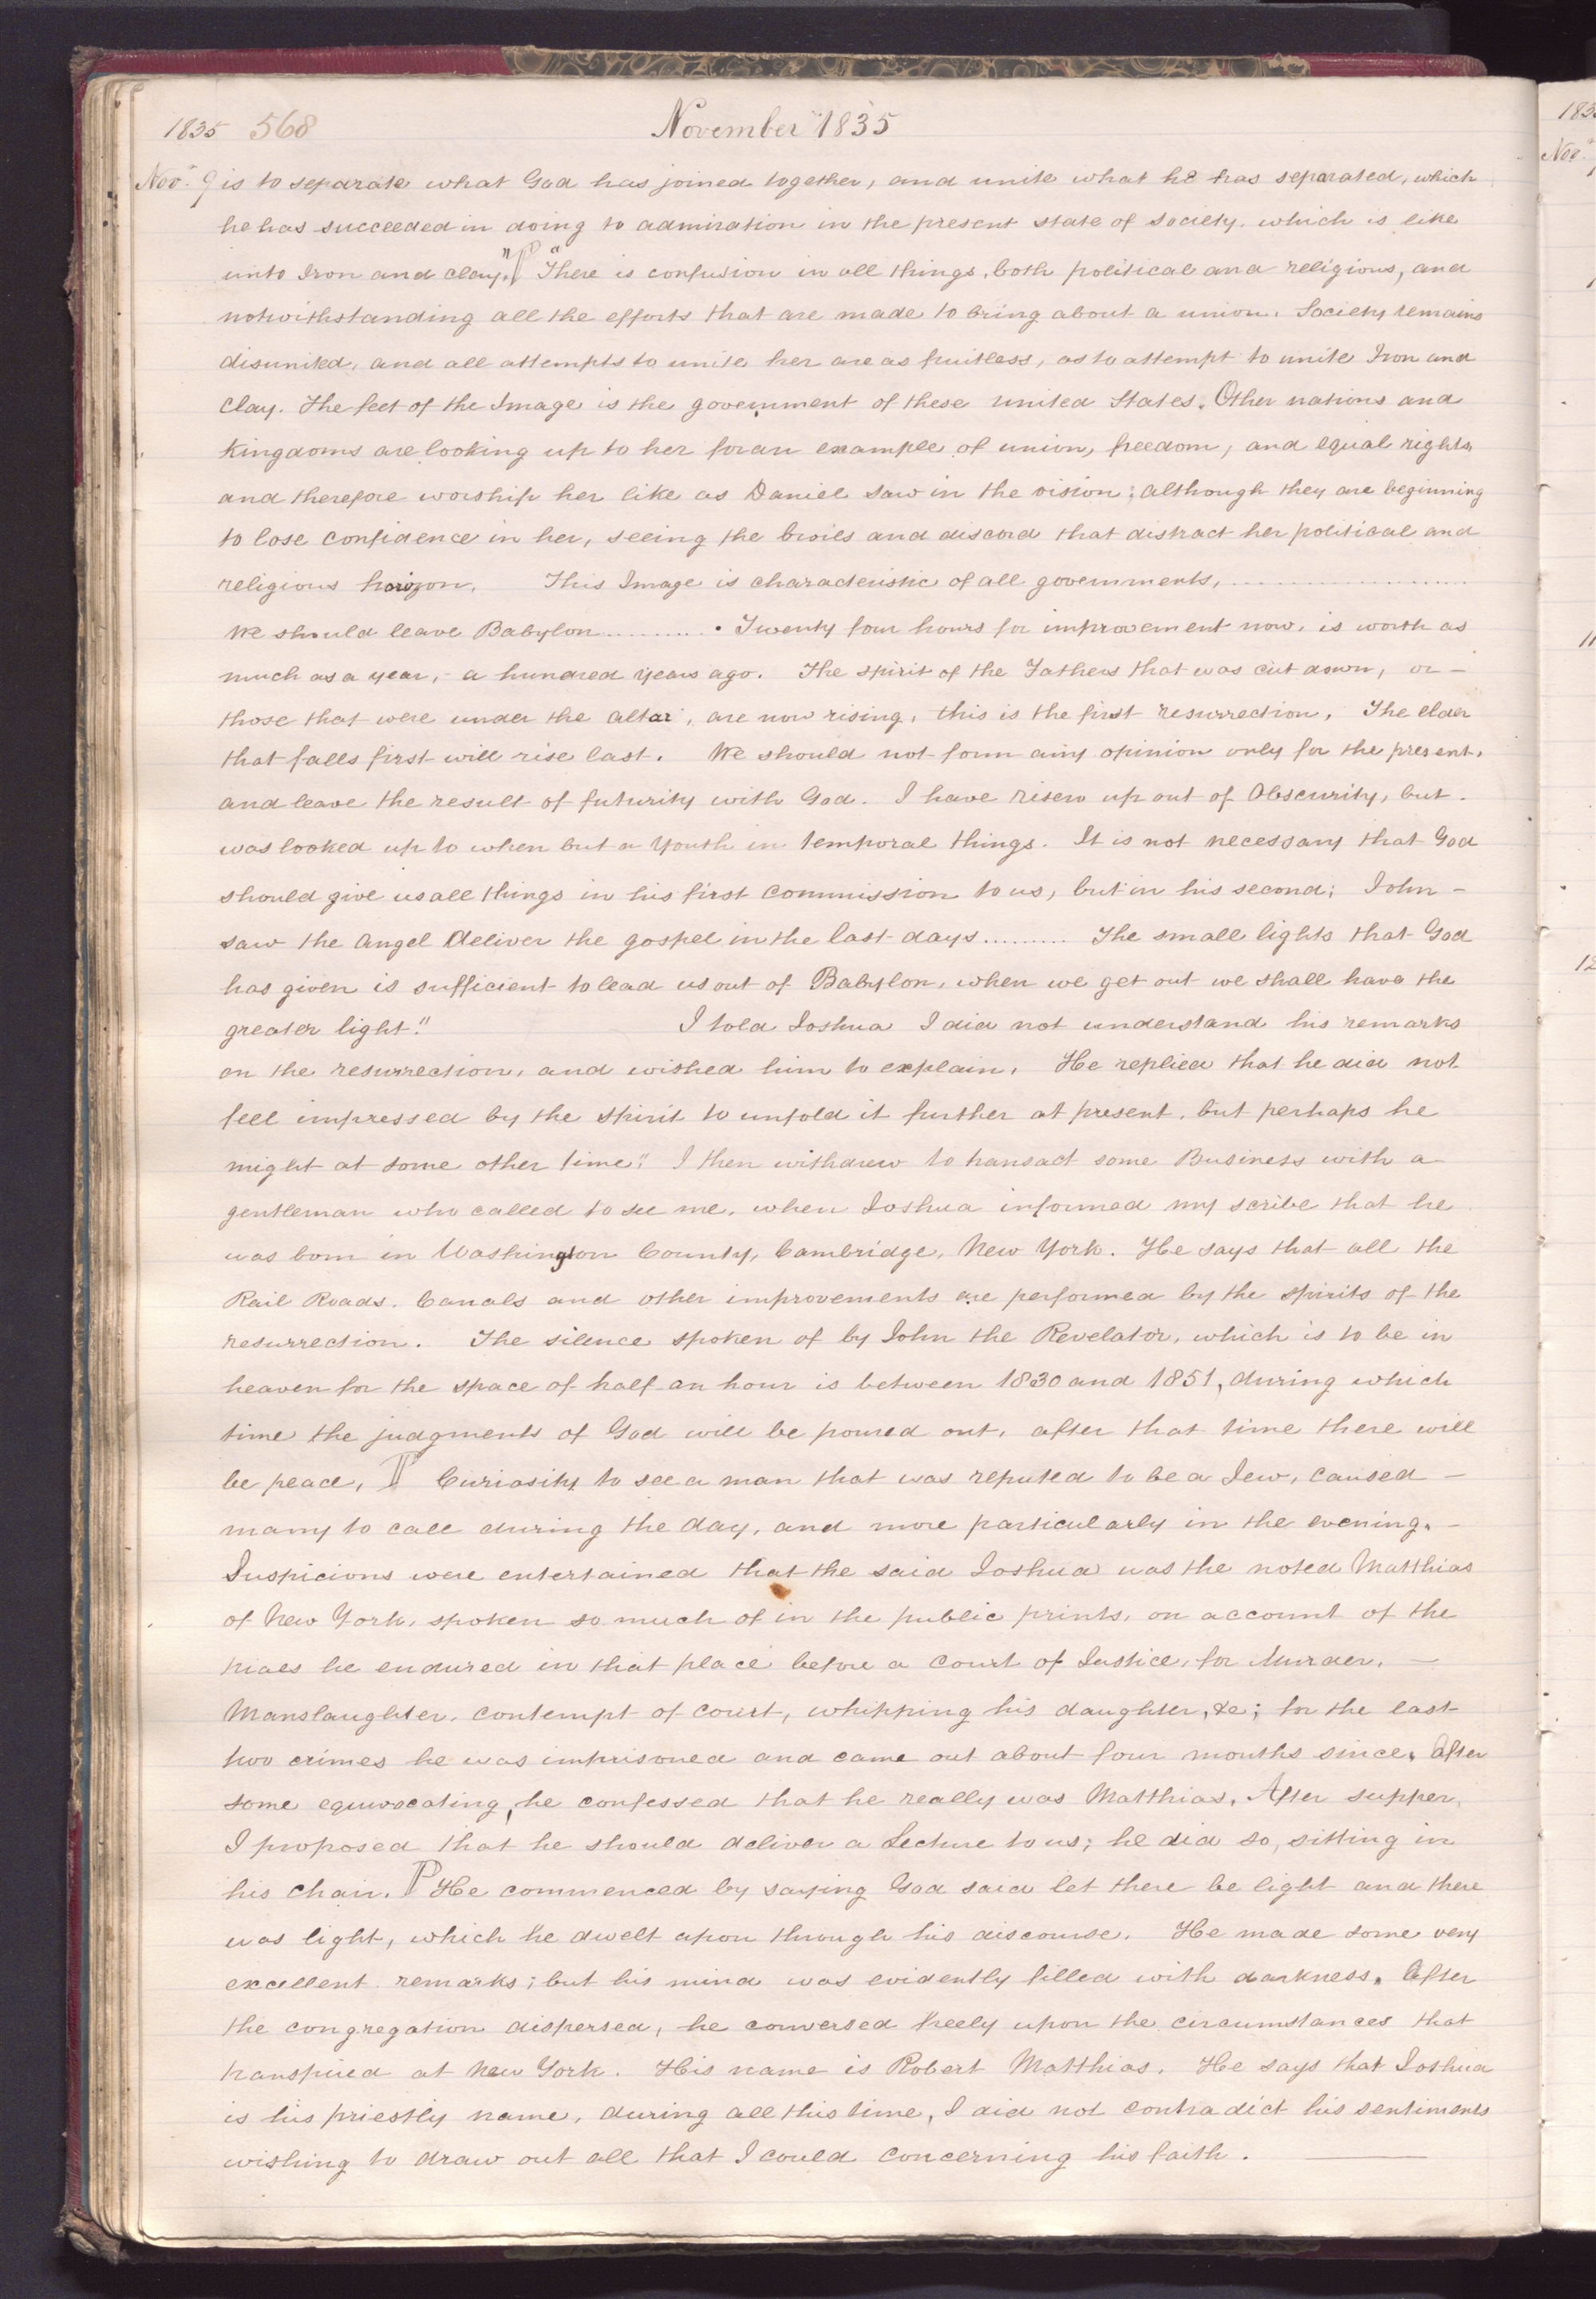 1835 568 November 1835
Nov. 9 is to separate what God has joined together, and unite what he has separated, which
he has succeeded in doing to admiration in the present state of society. which is like
unto Iron and clay." ¶ "There is confusion in all things, both political and religious, and
notwithstanding all the efforts that are made to bring about a union. Society remains
disunited, and all attempts to unite her are as fruitless, as to attempt to unite Iron and
Clay. The feet of the Image is the government of these united States. Other nations and
Kingdoms are looking up to her for an example of union, freedom, and equal rights,
and therefore worship her like as Daniel saw in the vision; although they are beginning
to lose confidence in her, seeing the broils and discord that distract her political and
religious horizon. This Image is characteristic of all governments, ..........
We should leave Babylon .......... . Twenty four hours for improvement now, is worth as
much as a year, - a hundred years ago. The spirit of the Fathers that was cut down, or -
those that were under the altar, are now rising, this is the first resurrection, The elder
that falls first will rise last. We should not form any opinion only for the present,
and leave the result of futurity with God. I have risen up out of Obscurity, but.
was looked up to when but a Youth in temporal things. It is not necessary that God
should give us all things in his first commission to us, but in his second; John -
saw the Angel deliver the gospel in the last days ......... The small lights that God
has given is sufficient to lead us out of Babylon, when we get out we shall have the
greater light." I told Joshua I did not understand his remarks
on the resurrection, and wished him to explain. He replied that he did not
feel impressed by the spirit to unfold it further at present, but perhaps he
might at some other time." I then withdrew to transact some Business with a
gentleman who called to see me, when Joshua informed my scribe that he
was born in Washington County, Cambridge, New York. He says that all the
Rail Roads, Canals and other improvements are performed by the spirits of the
resurrection. The silence spoken of by John the Revelator, which is to be in
heaven for the space of half an hour is between 1830 and 1851, during which
time the judgments of God will be poured out, after that time there will
be peace, ¶ Curiosity to see a man that was reputed to be a Jew, caused -
many to call during the day, and more particularly in the evening. -
Suspicions were entertained that the said Joshua was the noted Matthias
of New York, spoken so much of in the public prints, on account of the
trials he endured in that place before a court of Justice, for Murder, -
Manslaughter, contempt of court, whipping his daughter, &c; for the last
two crimes he was imprisoned and came out about four months since, After
some equivocating, he confessed that he really was Matthias. After supper,
I proposed that he should deliver a Lecture to us; he did so, sitting in
his chair. ¶ He commenced by saying God said let there be light and there
was light, which he dwelt upon through his discourse. He made some very
excellent remarks; but his mind was evidently filled with darkness. After
the congregation dispersed, he conversed freely upon the circumstances that
transpired at New York. His name is Robert Matthias. He says that Joshua
is his priestly name, during all this time, I did not contradict his sentiments
wishing to draw out all that I could concerning his faith.